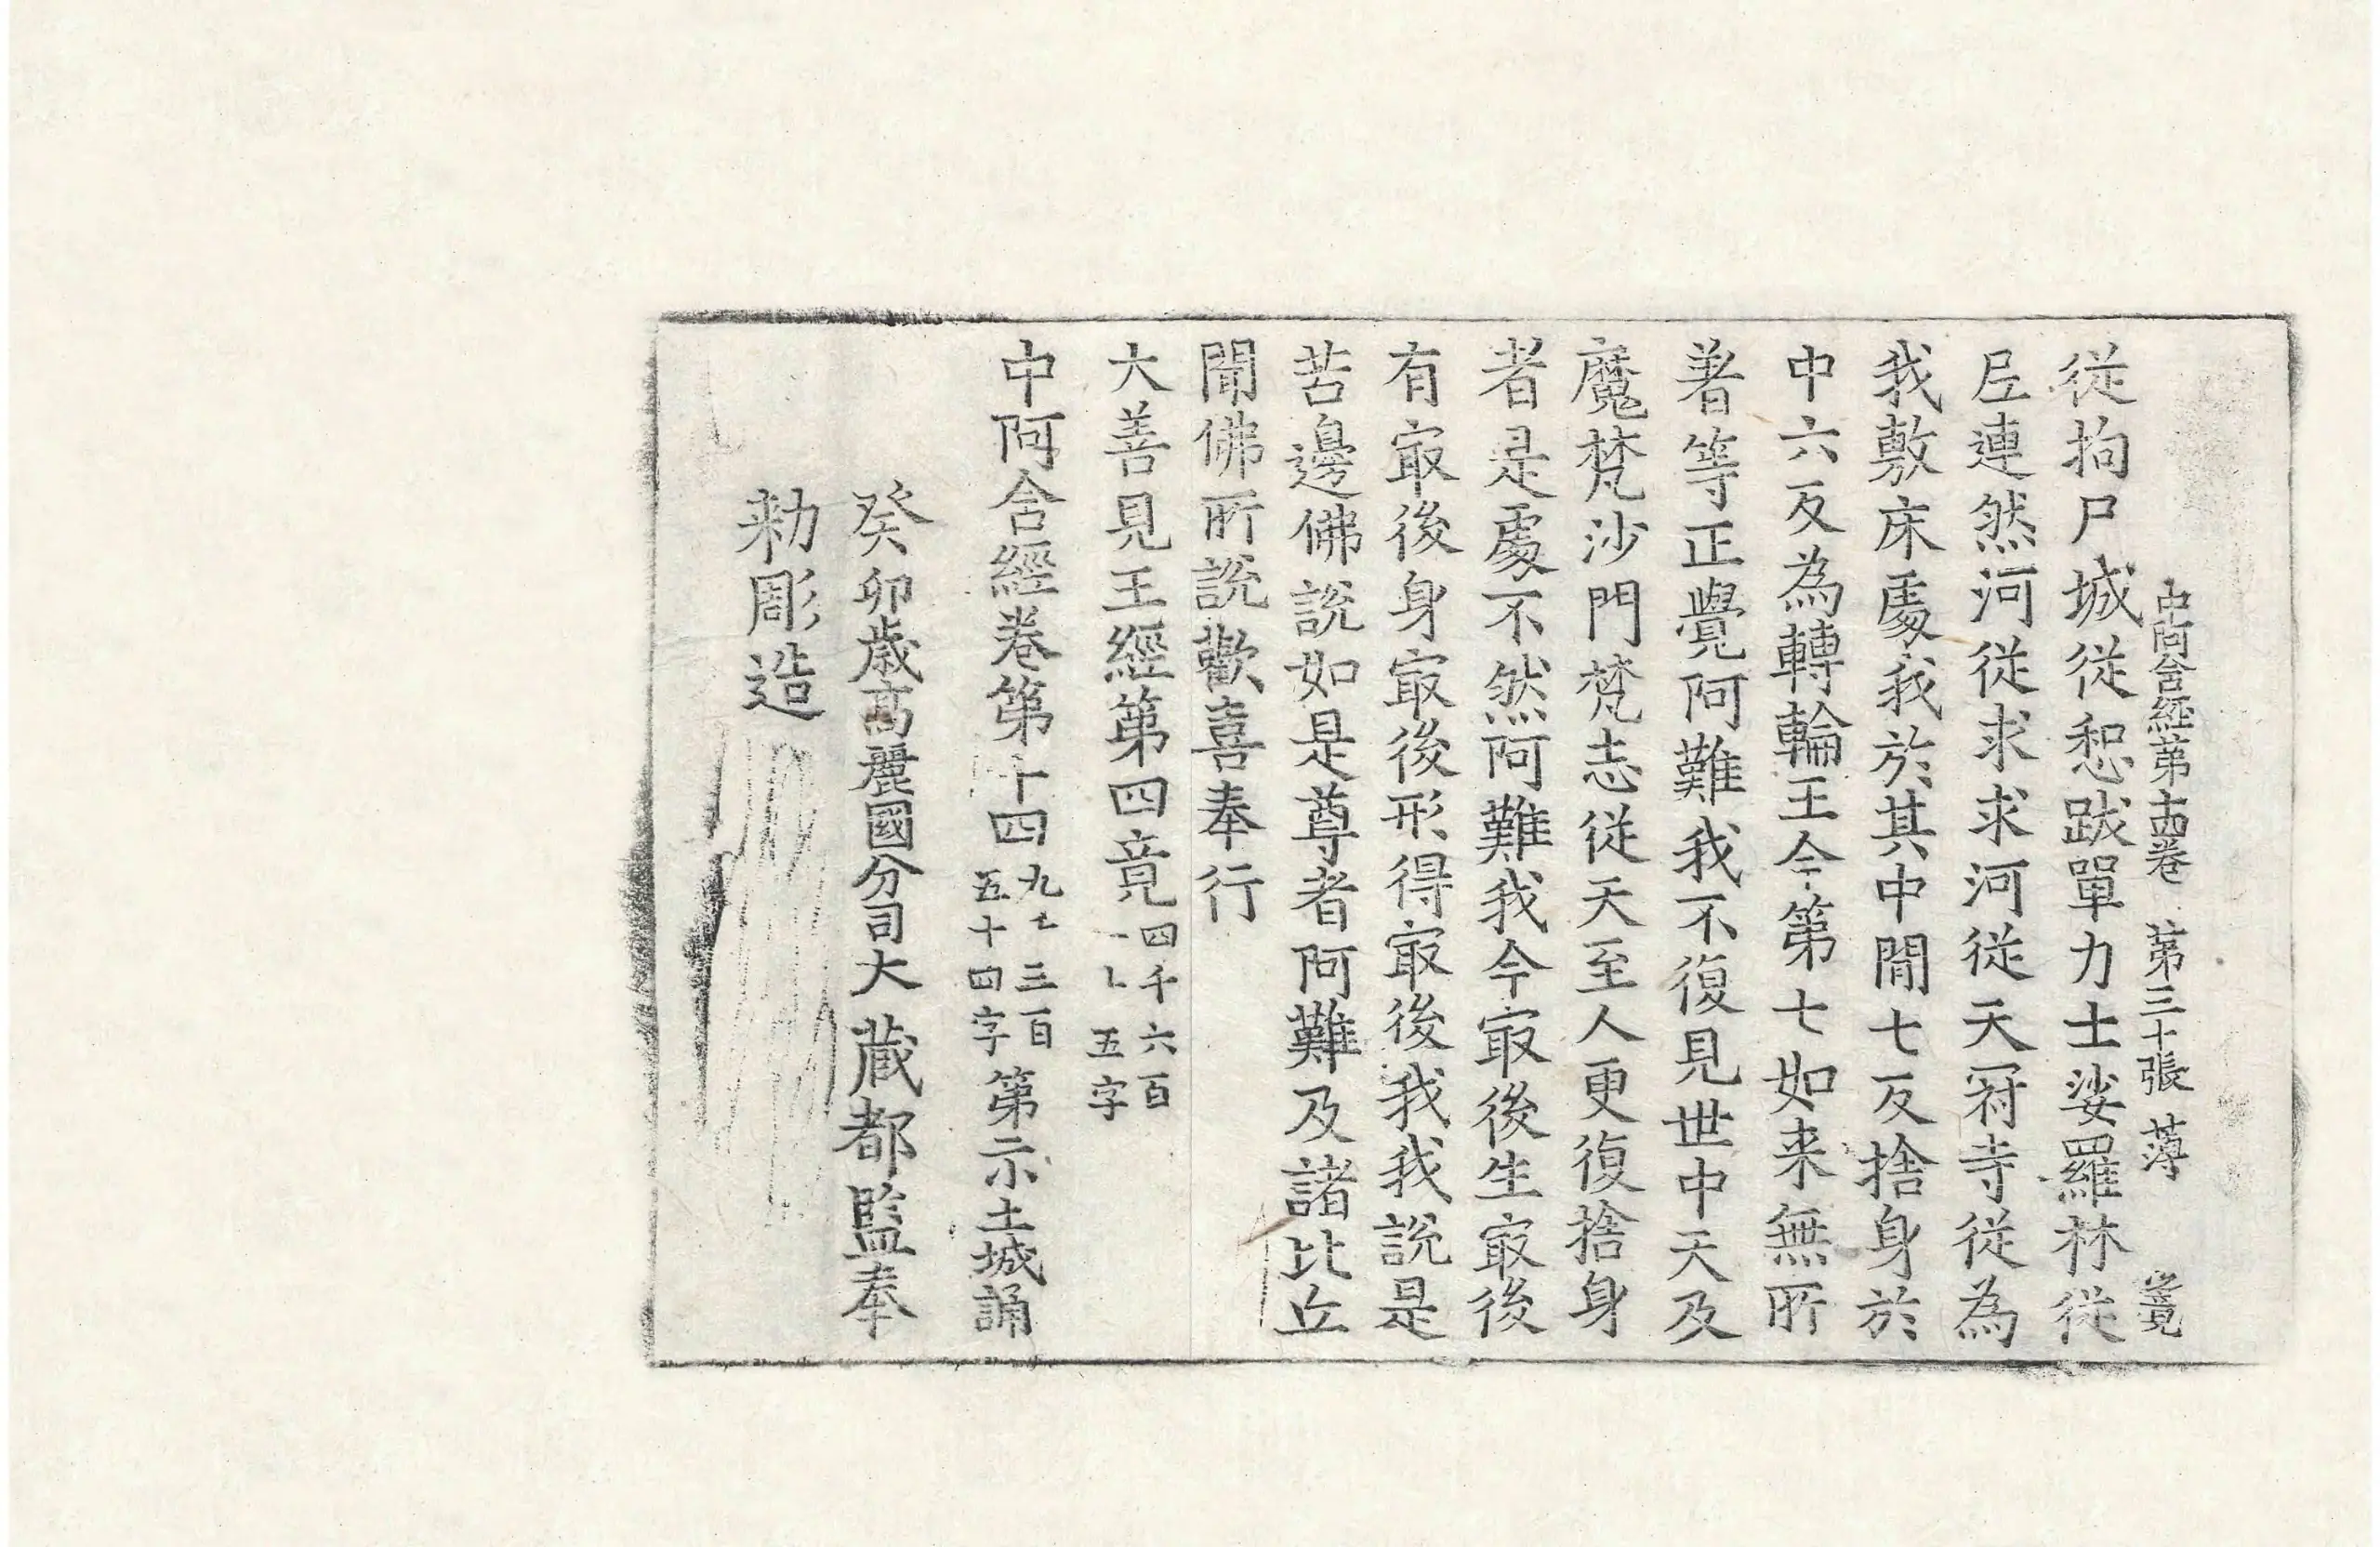 中阿含經第十四卷 第三十張 薄
從拘尸城從惒跋單力士娑羅林從
尼連然河從求求河從天冠寺從為
我敷床處我於其中閒七反捨身於
中六反為轉輪王今第七如来無所
著等正覺阿難我不復見世中天及
魔梵沙門梵志從天至人更復捨身
者是處不然阿難我今㝡後生㝡後
有㝡後身㝡後形得㝡後我我說是
苦邊佛說如是尊者阿難及諸比丘
聞佛所說歡喜奉行
大善見王經第四竟四千六百五字
中阿含經卷第十四九七三百五十四字第二小土城誦
癸卯歳髙麗國分司大藏都監奉
勑彫造